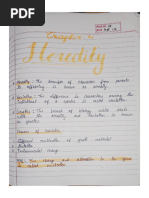 Chapter
Heredity
Heredity : The transfer of characters from parents
to offspring is known as heredity.
Variation : The difference in characters among the
individual of a species is called variation
Genetics : The branch of biology which deals
with the heredity and variation is known
as genetics.
Causes of variation
Different combination of genetic material
Mutation
Environmental change
The change and alteration in the gene
is called mutation.